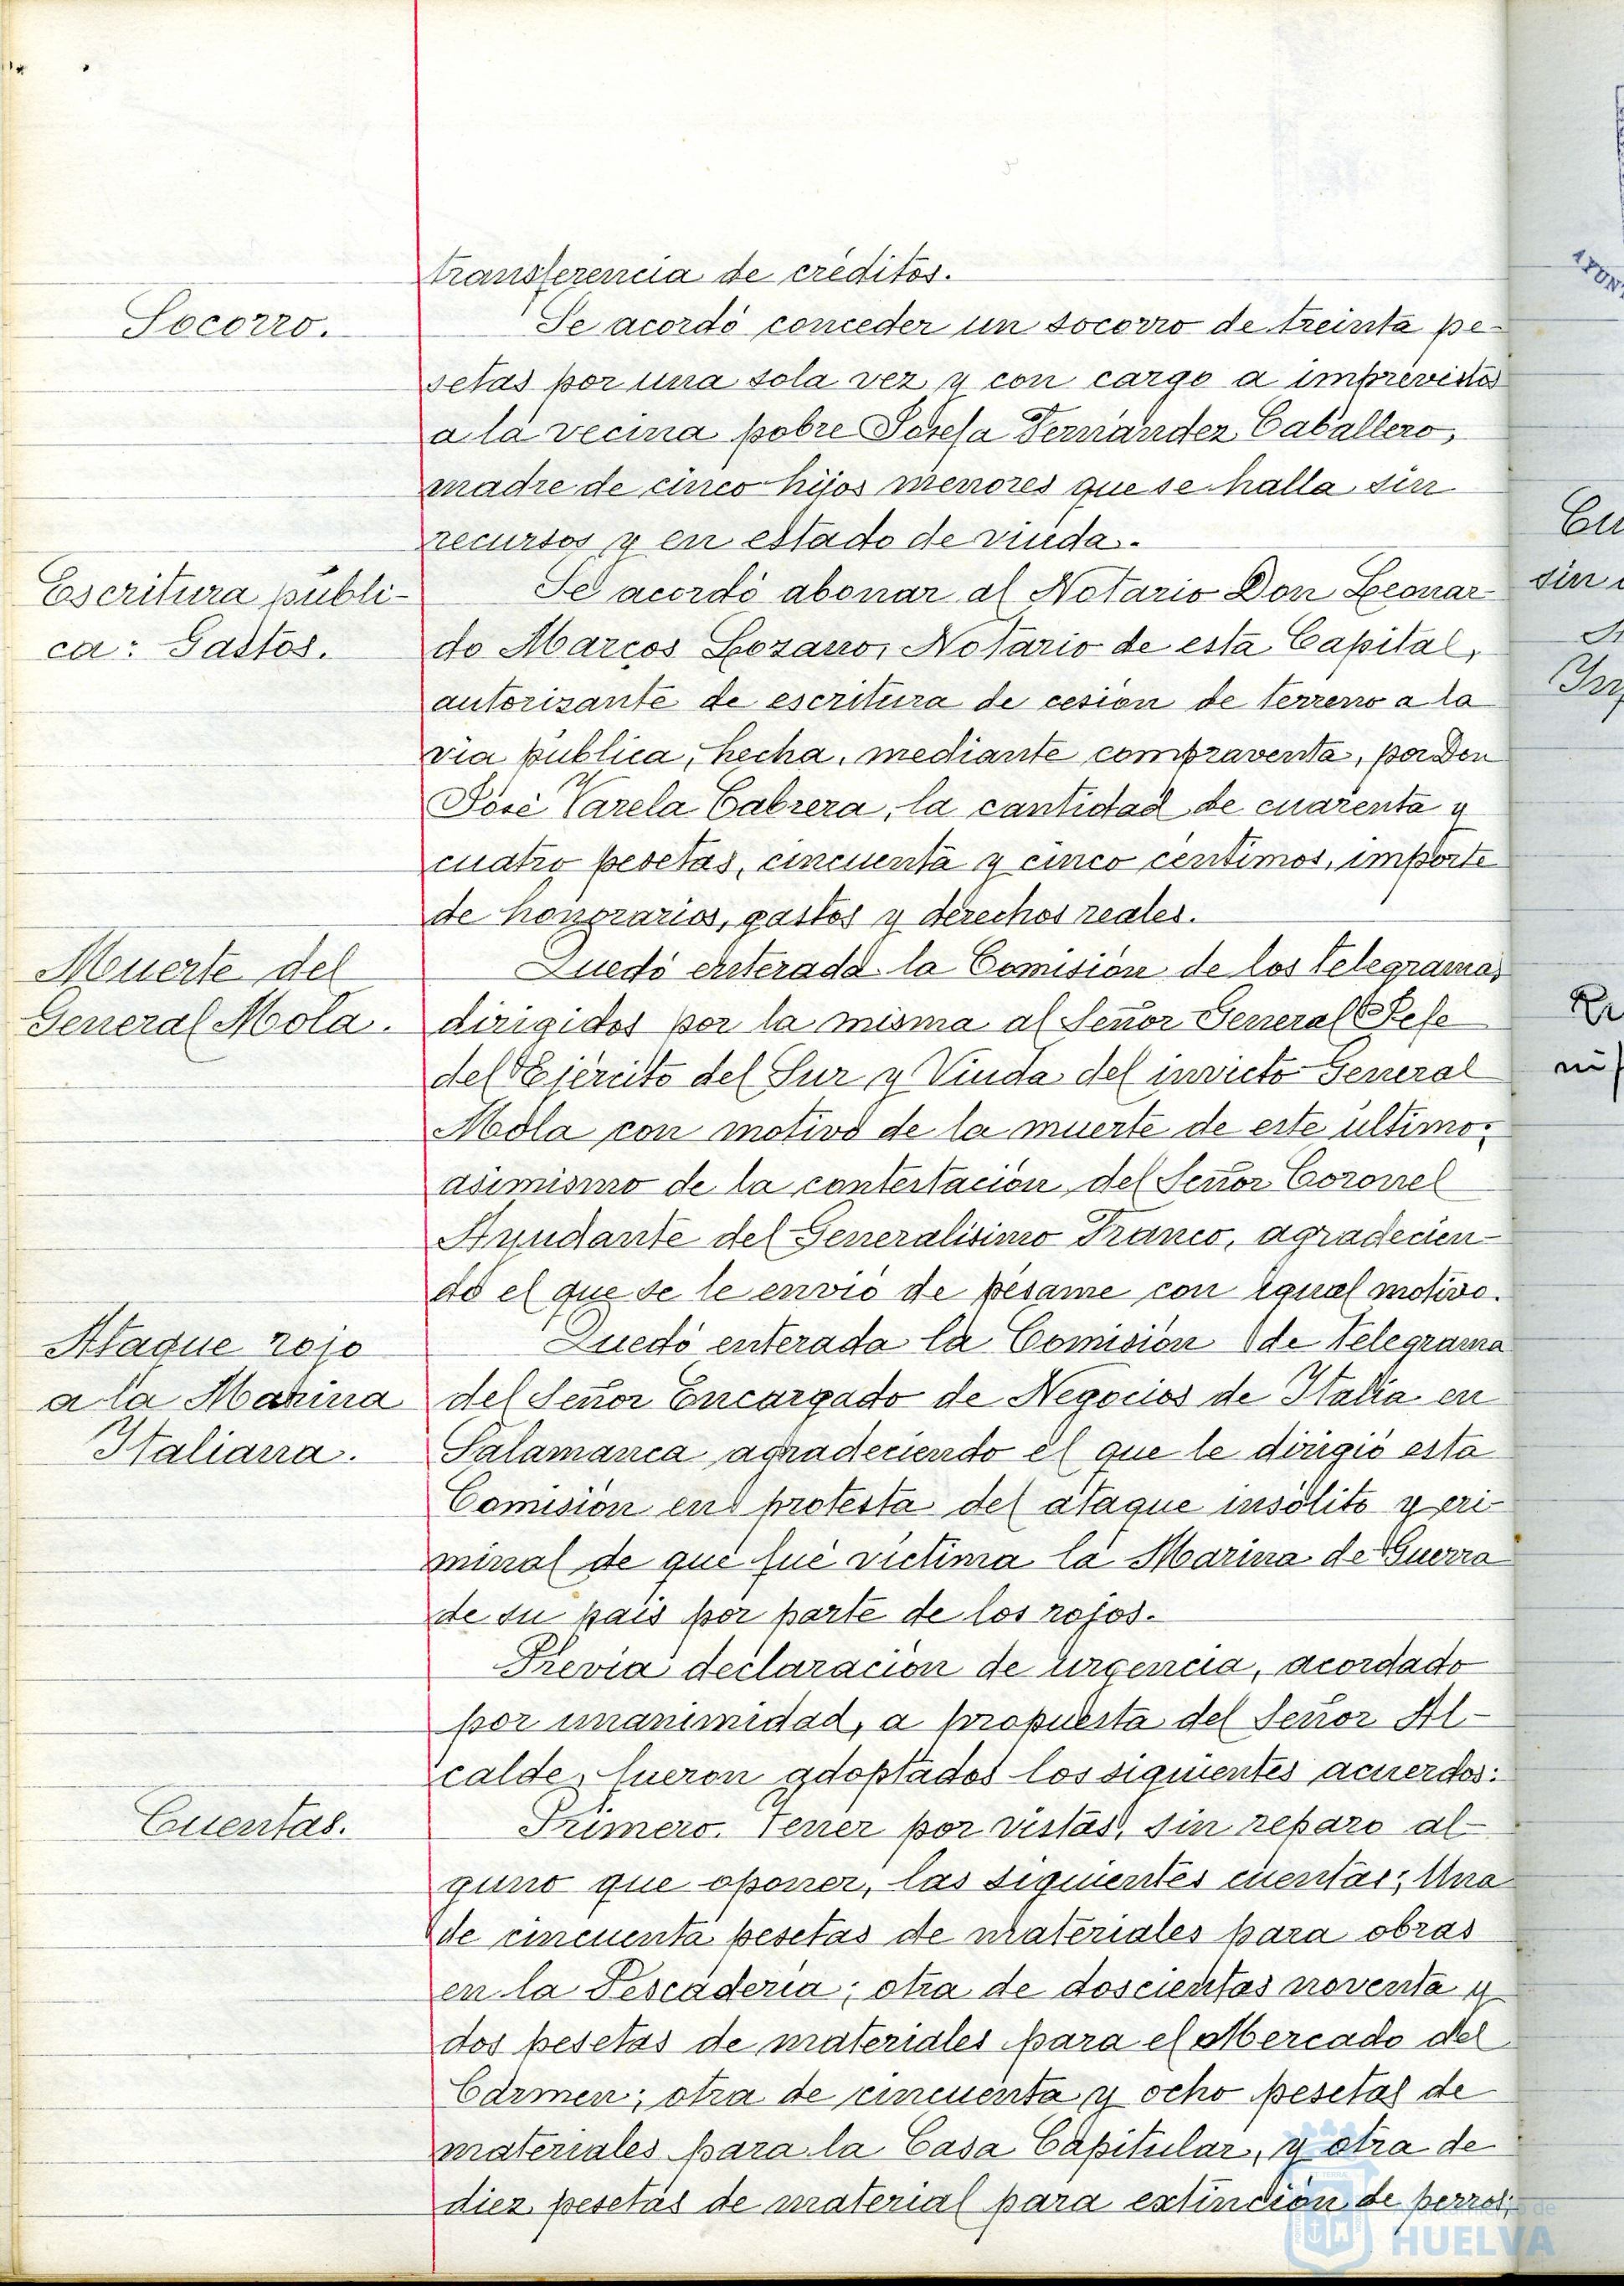 transferencia de créditos.
Socorro.
Se acordó conceder un socorro de treinta pe-
setas por una sola vez y con cargo a imprevistos
a la vecina pobre Josefa Fernández Caballero,
madre de cinco hijos menores que se halla sin
recursos y en estado de viuda.
Escritura públi-
ca: Gastos.
Se acordó abonar al Notario Don Leonar-
do Marcos Lozano, Notario de esta Capital,
autorizante de escritura de cesión de terreno a la
vía pública, hecha, mediante compraventa, por Don
José Varela Cabrera, la cantidad de cuarenta y
cuatro pesetas, cincuenta y cinco céntimos, importe
de honorarios, gastos y derechos reales.
Muerte del
General Mola.
Quedó enterada la Comisión de los telegramas
dirigidos por la misma al Señor General Jefe
del Ejército del Sur y Viuda del invicto General
Mola con motivo de la muerte de este último;
asimismo de la contestación del Señor Coronel
Ayudante del Generalísimo Franco, agradecien-
do el que se le envió de pésame con igual motivo.
Ataque rojo
a la Marina
Italiana.
Quedó enterada la Comisión de telegrama
del Señor Encargado de Negocios de Italia en
Salamanca agradeciendo el que le dirigió esta
Comisión en protesta del ataque insólito y cri-
minal de que fué víctima la Marina de Guerra
de su país por parte de los rojos.
Previa declaración de urgencia, acordado
por unanimidad, a propuesta del Señor Al-
calde, fueron adoptados los siguientes acuerdos:
Cuentas.
Primero. Tener por vistas, sin reparo al-
guno que oponer, las siguientes cuentas: Una
de cincuenta pesetas de materiales para obras
en la Pescadería; otra de doscientas noventa y
dos pesetas de materiales para el Mercado del
Carmen; otra de cincuenta y ocho pesetas de
materiales para la Casa Capitular, y otra de
diez pesetas de material para extinción de perros;
Ayuntamiento de
HUELVA